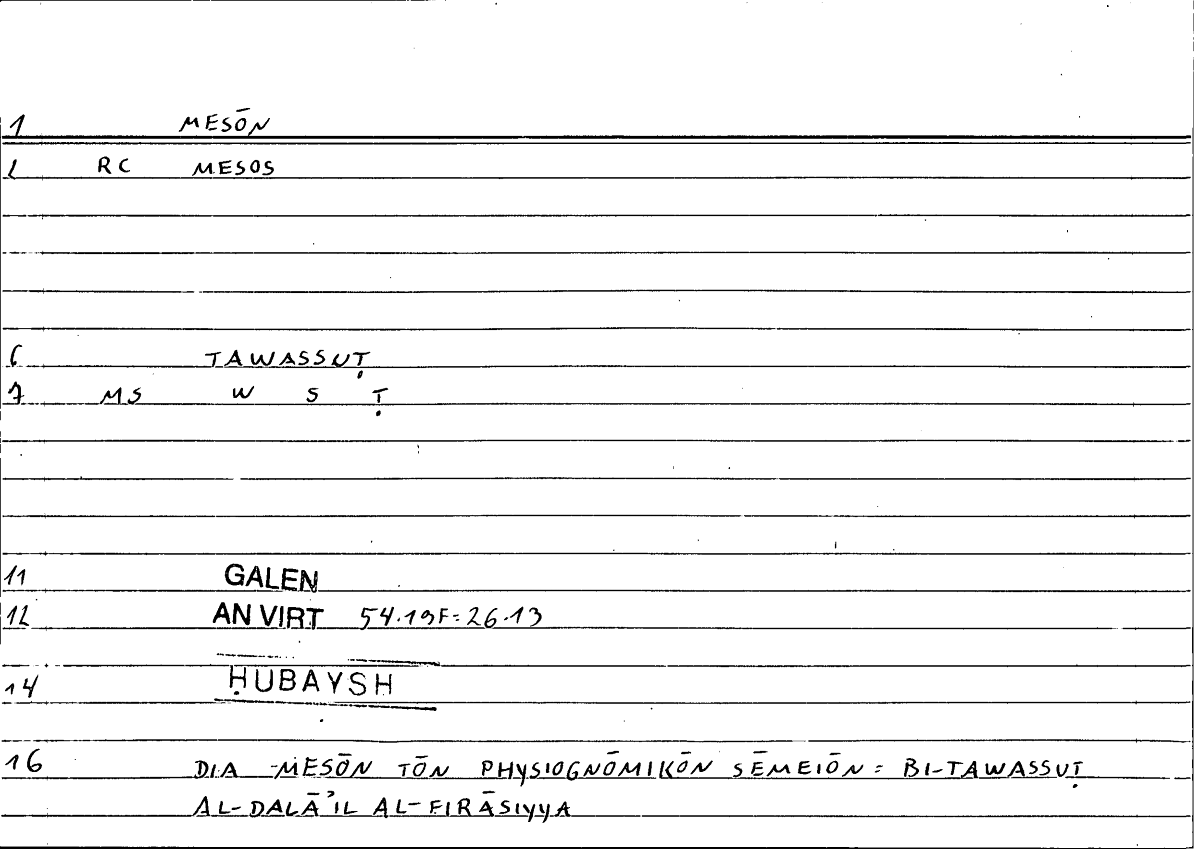 1 MESŌN
2 RC MESOS
6 TAWASSUṬ
7 MS W S Ṭ
11 GALEN
12 AN VIRT 54.19F=26.13
14 ḤUBAYSH
16 DIA MESŌN TŌN PHYSIOGNŌMIKŌN SĒMEIŌN = BI-TAWASSUṬ
AL-DALĀʾIL AL-FIRĀSIYYA